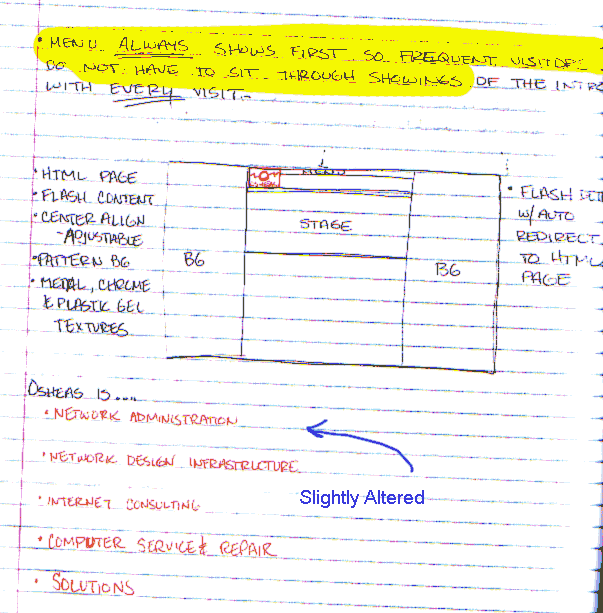 • MENU ALWAYS SHOWS FIRST SO FREQUENT VISITORS
DO NOT HAVE TO SIT THROUGH SHOWINGS OF THE INTRO
WITH EVERY VISIT.
• HTML PAGE
• FLASH CONTENT
• CENTER ALIGN
- ADJUSTABLE
• PATTERN BG
• METAL, CHROME
& PLASTIC GEL
TEXTURES
MENU
STAGE
BG
BG
• FLASH
W/ AUTO
REDIRECT
TO HTML
PAGE
OSHEAS IS....
• NETWORK ADMINISTRATION
• NETWORK DESIGN INFRASTRUCTURE
• INTERNET CONSULTING
• COMPUTER SERVICE & REPAIR
• SOLUTIONS
Slightly Altered